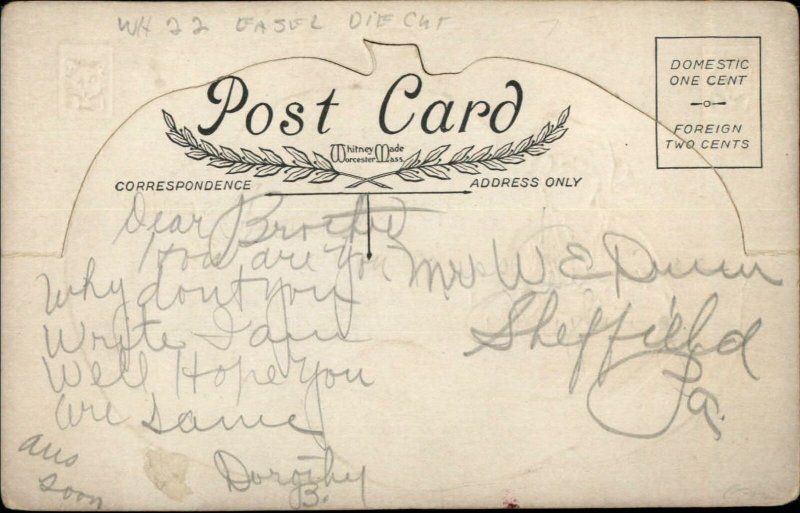 WH 22 EASEL DIE CUT
Post Card
Whitney Made
Worcester Mass.
DOMESTIC
ONE CENT
FOREIGN
TWO CENTS
CORRESPONDENCE
ADDRESS ONLY
Dear Brother
How are You
Why dont you
Write I am
Well Hope You
are same
ans
soon
Dorothy
B.
Mr W E Dunn
Sheffield
Pa.